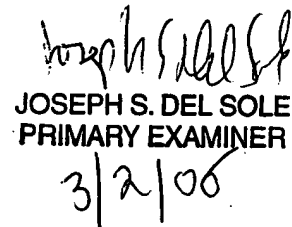 Joseph S. Del Sole
JOSEPH S. DEL SOLE
PRIMARY EXAMINER
3/2/06